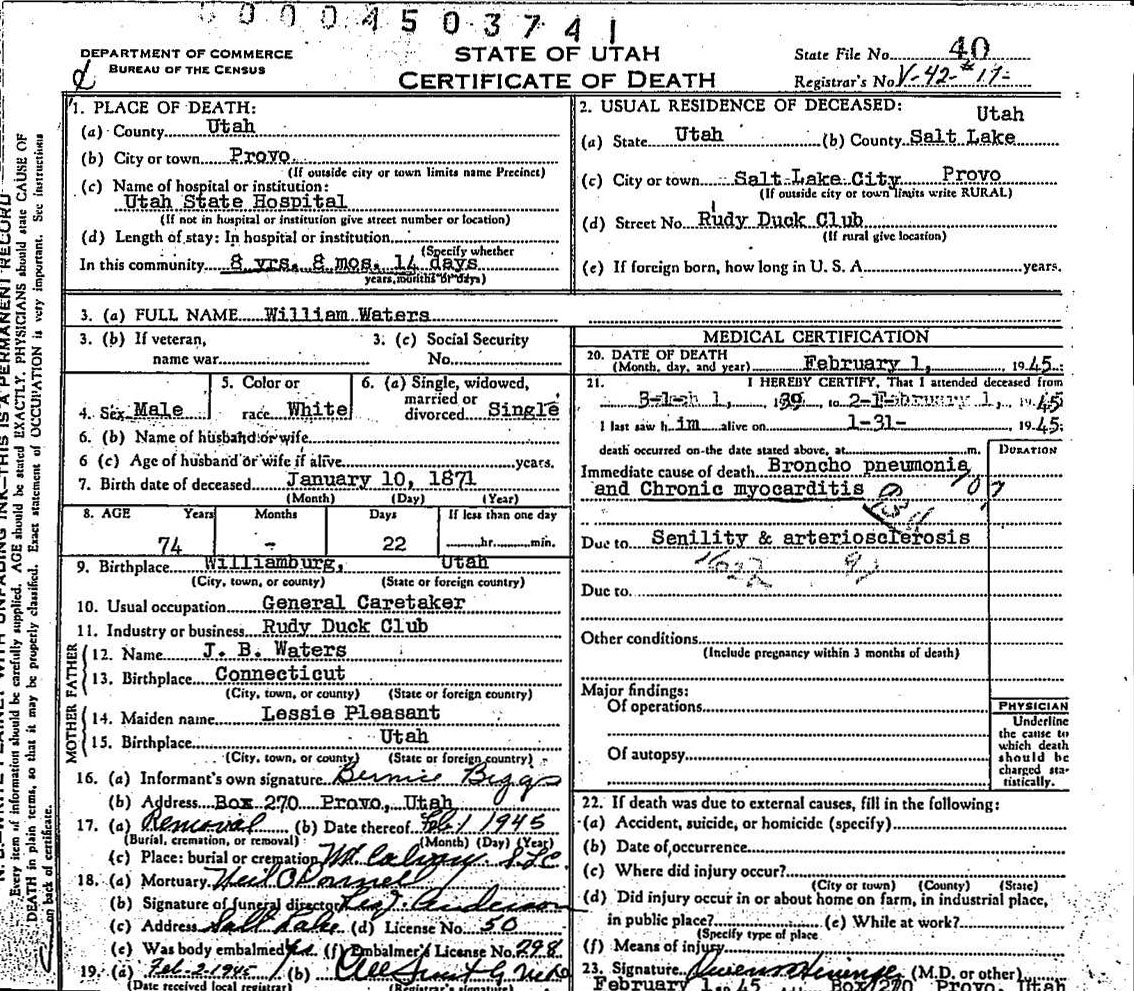 00004503741
DEPARTMENT OF COMMERCE
BUREAU OF THE CENSUS
STATE OF UTAH
CERTIFICATE OF DEATH
State File No. 40
Registrar's No. V-42-#17-
1. PLACE OF DEATH:
(a) County Utah
(b) City or town Provo.
(If outside city or town limits name Precinct)
(c) Name of hospital or institution:
Utah State Hospital
(If not in hospital or institution give street number or location)
(d) Length of stay: In hospital or institution
(Specify whether
In this community 8 yrs. 8 mos. 14 days
years, months or days)
2. USUAL RESIDENCE OF DECEASED:
Utah
(a) State Utah (b) County Salt Lake
(c) City or town Salt Lake City Provo
(If outside city or town limits write RURAL)
(d) Street No. Rudy Duck Club
(If rural give location)
(e) If foreign born, how long in U. S. A. years.
3. (a) FULL NAME William Waters
3. (b) If veteran, 3. (c) Social Security
name war No.
4. Sex Male
5. Color or
race White
6. (a) Single, widowed,
married or
divorced Single
6. (b) Name of husband or wife
6 (c) Age of husband or wife if alive years.
7. Birth date of deceased January 10, 1871
(Month) (Day) (Year)
8. AGE Years Months Days If less than one day
74 - 22 hr. min.
9. Birthplace Williamburg, Utah
(City, town, or county) (State or foreign country)
10. Usual occupation General Caretaker
11. Industry or business Rudy Duck Club
FATHER
12. Name J. B. Waters
13. Birthplace Connecticut
(City, town, or county) (State or foreign country)
MOTHER
14. Maiden name Lessie Pleasant
15. Birthplace Utah
(City, town, or county) (State or foreign country)
16. (a) Informant's own signature Bernice Biggs
(b) Address Box 270 Provo, Utah
17. (a) Removal (b) Date thereof Feb. 1 1945
(Burial, cremation, or removal) (Month) (Day) (Year)
(c) Place: burial or cremation Mt Calvary S.L.C.
18. (a) Mortuary Neil O'Donnell
(b) Signature of funeral director Anderson
(c) Address Salt Lake (d) License No. 50
(e) Was body embalmed yes (f) Embalmer's License No. 298
19. (a) Feb-2-1945 (b)
(Date received local registrar) (Registrar's signature)
MEDICAL CERTIFICATION
20. DATE OF DEATH
(Month, day, and year) February 1, 1945
21. I HEREBY CERTIFY, That I attended deceased from
1, 1939, to 2-February 1, 1945
I last saw him alive on 1-31- 1945
death occurred on the date stated above, at m. DURATION
Immediate cause of death Broncho pneumonia 107
and Chronic myocarditis
Due to Senility & arteriosclerosis
Due to
Other conditions
(Include pregnancy within 3 months of death)
Major findings:
Of operations
Of autopsy
PHYSICIAN
Underline
the cause to
which death
should be
charged sta-
tistically.
22. If death was due to external causes, fill in the following:
(a) Accident, suicide, or homicide (specify)
(b) Date of occurrence
(c) Where did injury occur?
(City or town) (County) (State)
(d) Did injury occur in or about home on farm, in industrial place,
in public place? (e) While at work?
(Specify type of place
(f) Means of injury
23. Signature (M.D. or other)
February 1, 45 Box 270 Provo, Utah
THIS IS A PERMANENT RECORD
Every item of information should be carefully supplied. AGE should be stated EXACTLY. PHYSICIANS should state CAUSE OF
DEATH in plain terms, so that it may be properly classified. Exact statement of OCCUPATION is very important. See instructions
on back of certificate.